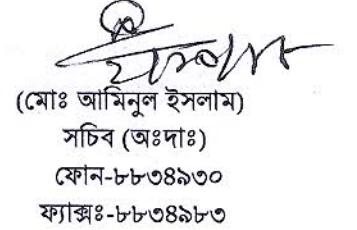 (মোঃ আমিনুল ইসলাম)
সচিব (অঃদাঃ)
ফোন-৮৮৩৪৯৩০
ফ্যাক্সঃ-৮৮৩৪৯৮৩